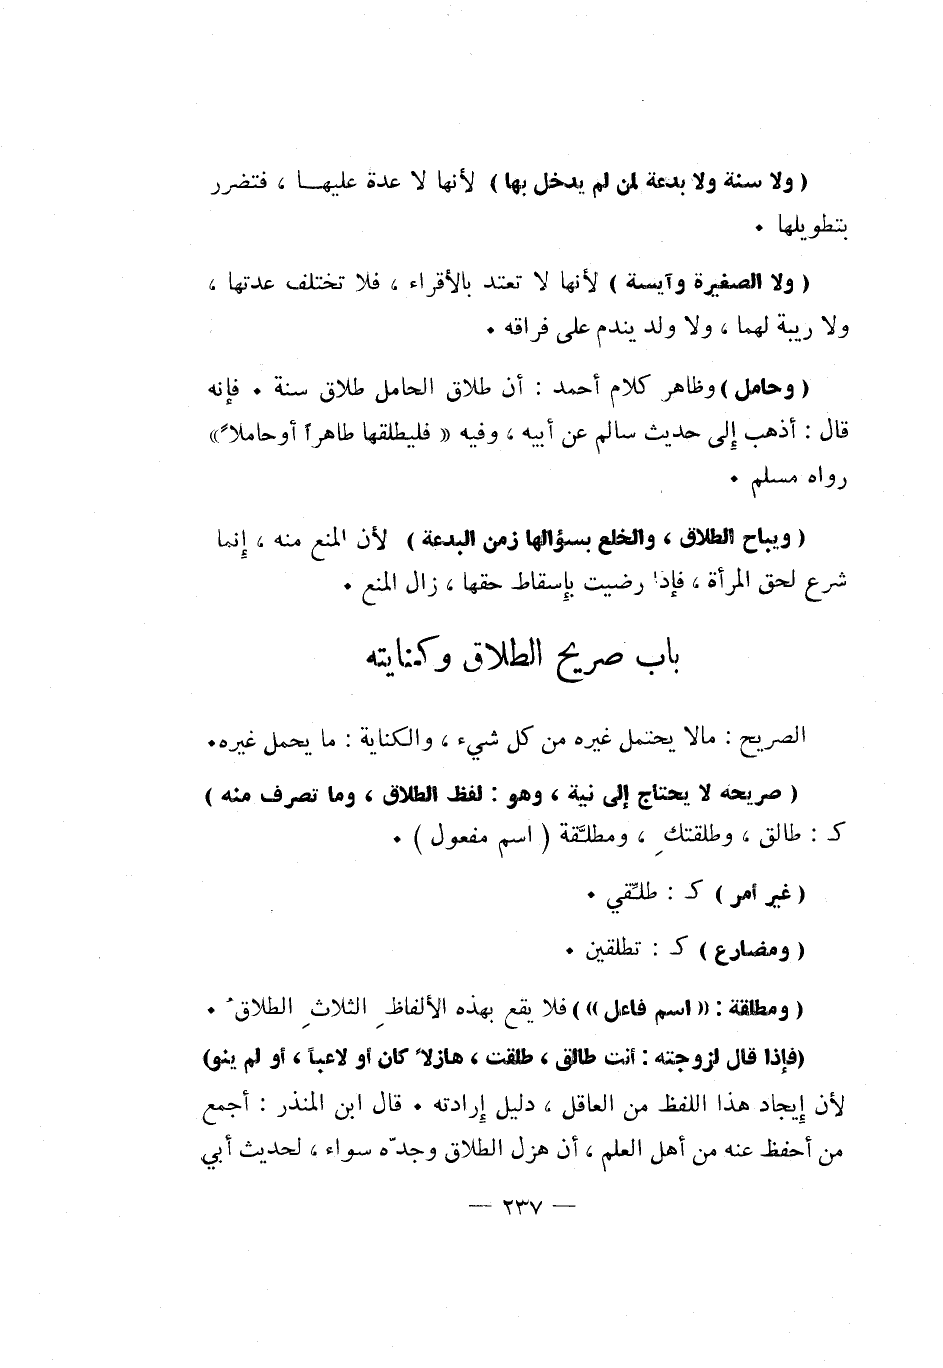 ( ولا سنة ولا بدعة لمن لم يدخل بها ) لأنها لا عدة عليهـــا ، فتضرر
بتطويلها ٠
( ولا الصغيرة وآيسة ) لأنها لا تعتد بالأقراء ، فلا تختلف عدتها ،
ولا ريبة لهما ، ولا ولد يندم على فراقه ٠
( وحامل ) وظاهر كلام أحمد : أن طلاق الحامل طلاق سنة ٠ فإنه
قال : أذهب إلى حديث سالم عن أبيه ، وفيه « فليطلقها طاهراً أوحاملاً »
رواه مسلم ٠
( ويباح الطلاق ، والخلع بسؤالها زمن البدعة ) لأن المنع منه ، إنما
شرع لحق المرأة ، فإذا رضيت بإسقاط حقها ، زال المنع ٠
باب صريح الطلاق وكنايته
الصريح : مالا يحتمل غيره من كل شيء ، والكناية : ما يحمل غيره٠
( صريحه لا يحتاج إلى نية ، وهو : لفظ الطلاق ، وما تصرف منه )
كـ : طالق ، وطلقتكِ ، ومطلَّقة ( اسم مفعول ) ٠
( غير أمر ) كـ : طلِّقي ٠
( ومضارع ) كـ : تطلقين ٠
( ومطلقة : «اسم فاعل» ) فلا يقع بهذه الألفاظِ الثلاثِ الطلاقُ ٠
(فإذا قال لزوجته : أنت طالق ، طلقت ، هازلاً كان أو لاعباً ، أو لم ينو)
لأن إيجاد هذا اللفظ من العاقل ، دليل إرادته ٠ قال ابن المنذر : أجمع
من أحفظ عنه من أهل العلم ، أن هزل الطلاق وجدّه سواء ، لحديث أبي
— ٢٣٧ —